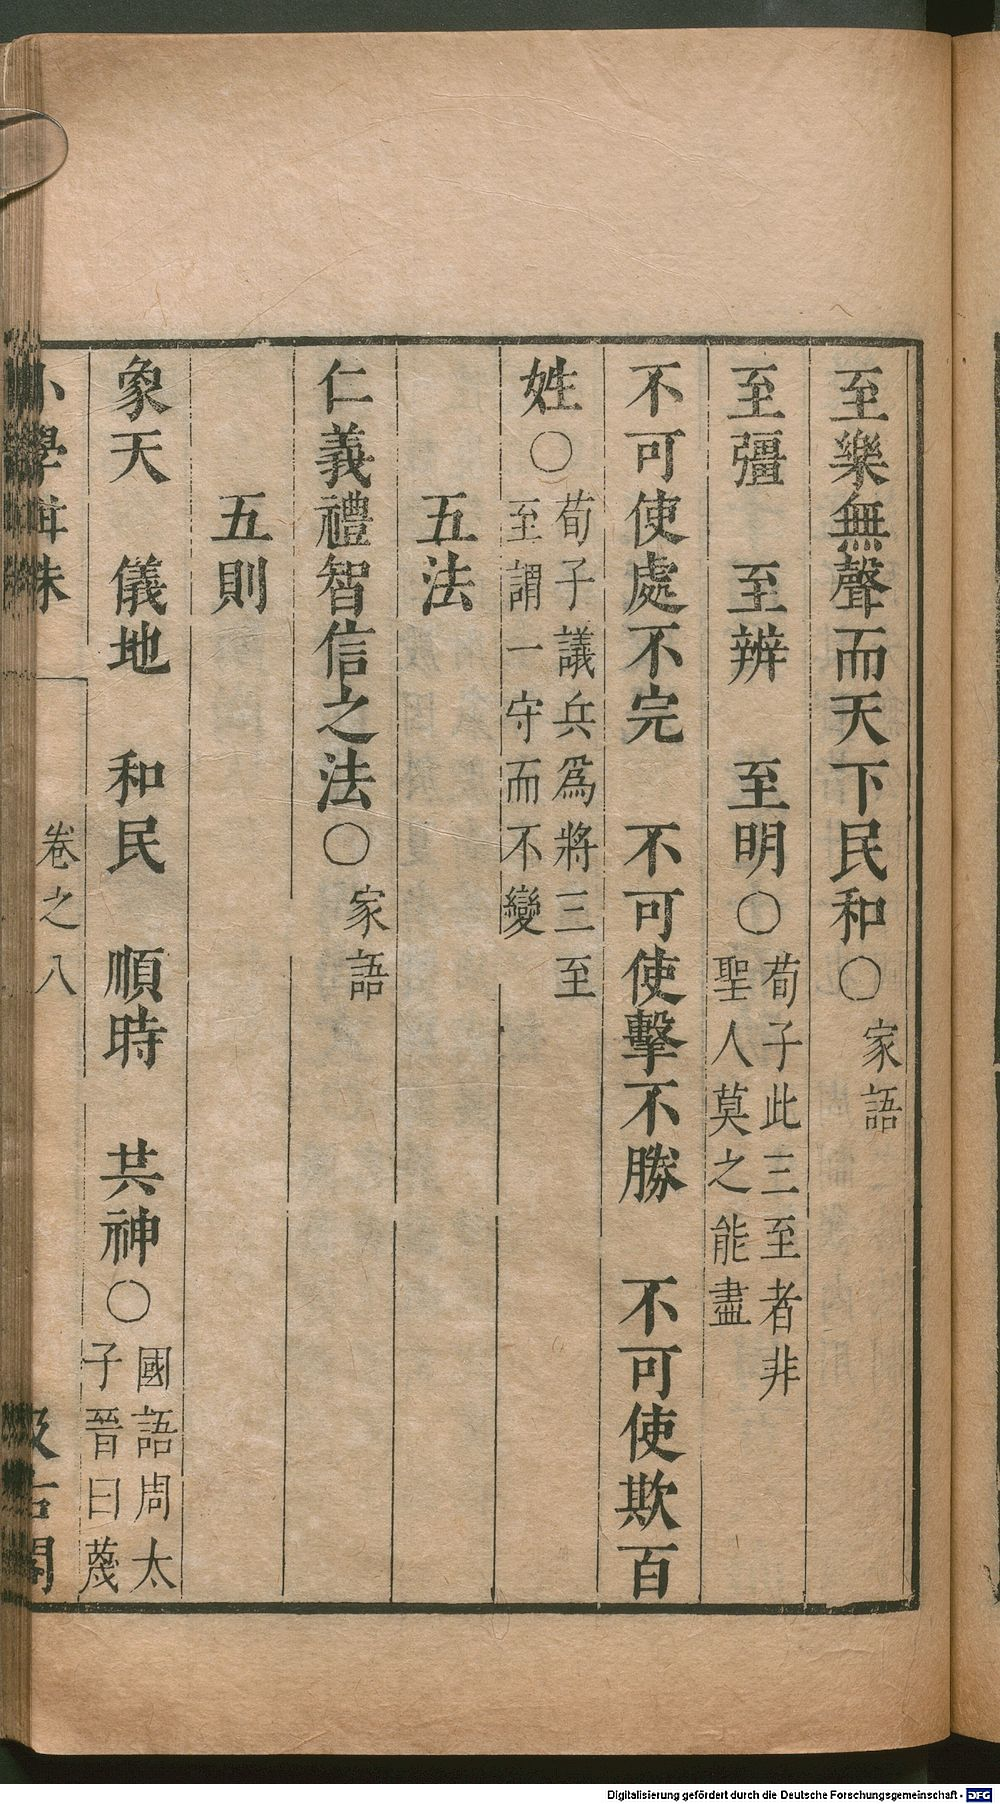 至樂無聲而天下民和〇家語
至彊　至辨　至明〇荀子此三至者非
聖人莫之能盡
不可使處不完　不可使擊不勝　不可使欺百
姓〇荀子議兵爲將三至
至謂一守而不變
五法
仁義禮智信之法〇家語
五則
象天　儀地　和民　順時　共神〇國語周太
子晉曰蔑
小學紺珠
卷之八
汲古閣
Digitalisierung gefördert durch die Deutsche Forschungsgemeinschaft - DFG